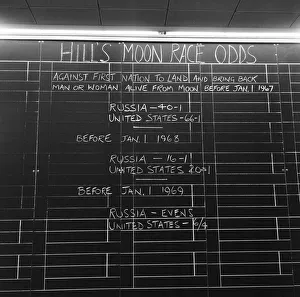 HILL'S MOON RACE ODDS
AGAINST FIRST NATION TO LAND AND BRING BACK
MAN OR WOMAN ALIVE FROM MOON BEFORE JAN. 1 1967
RUSSIA — 40-1
UNITED STATES - 66-1
BEFORE JAN. 1 1968
RUSSIA - 16-1
UNITED STATES 20-1
BEFORE JAN. 1 1969
RUSSIA - EVENS
UNITED STATES - 6/4